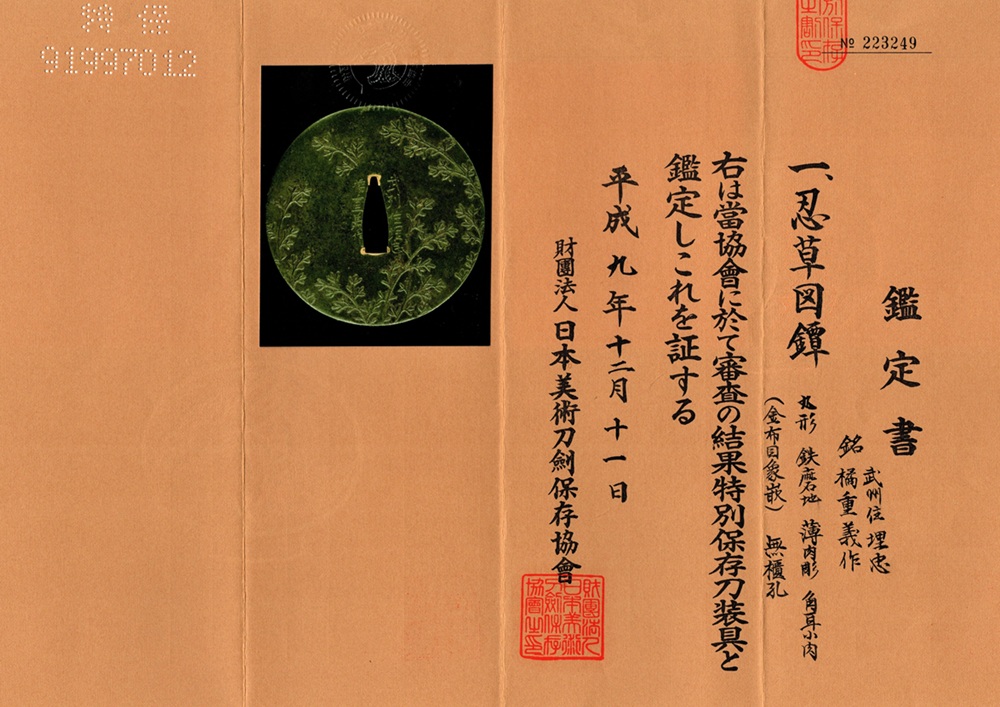 特保
91997012
№ 223249
鑑定書
一、忍草図鐔
銘 武州住埋忠
橘重義作
丸形 鉄磨地 薄肉彫 角耳小肉
(金布目象嵌) 無櫃孔
右は當協會に於て審査の結果特別保存刀装具と
鑑定しこれを証する
平成九年十二月十一日
財團法人日本美術刀劍保存協會
財團法人日本美術刀劍保存協會之印